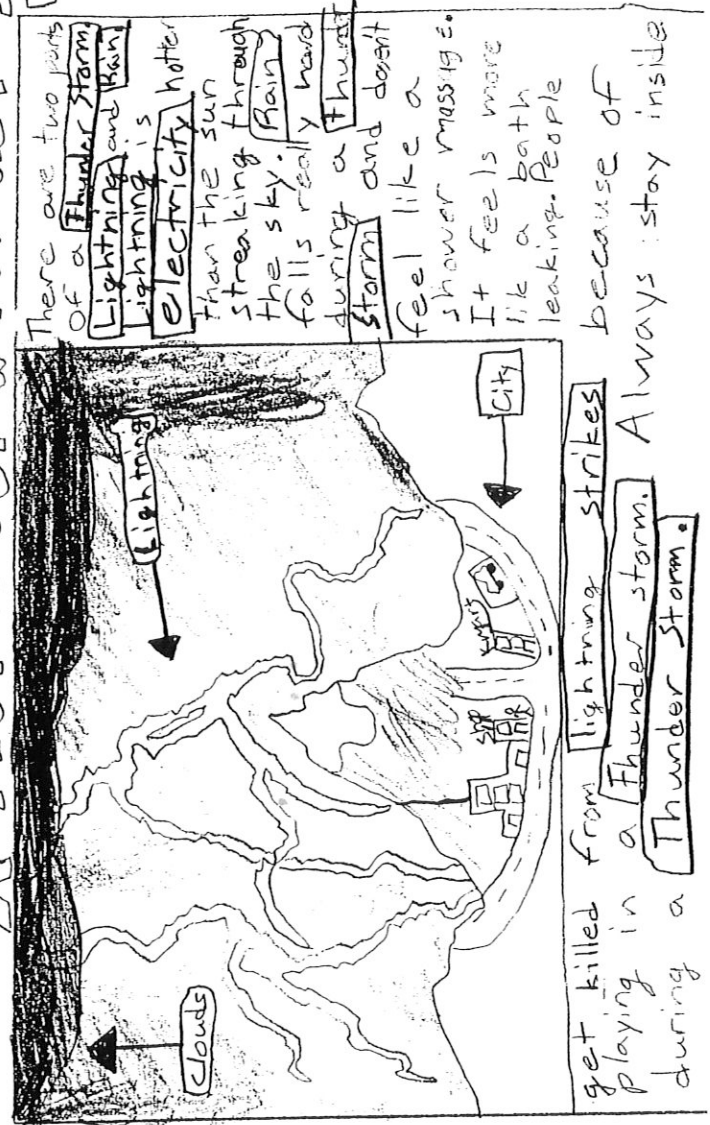 There are two parts
of a Thunder Storm.
Lightning and Rain.
Lightning is
electricity hotter
than the sun
streaking through
the sky. Rain
falls really hard
during a thunder
Storm and doesn't
feel like a
shower massage.
It feels more
like a bath
leaking. People
get killed from lightning strikes because of
playing in a Thunder storm. Always stay inside
during a Thunder Storm.
Clouds
Lightning
City